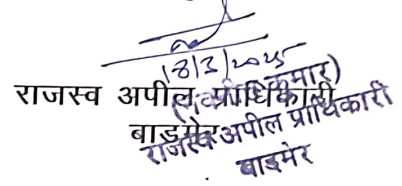 18/3/2025
राजस्व अपील प्राधिकारी
बाड़मेर
राजस्व अपील प्राधिकारी
बाड़मेर